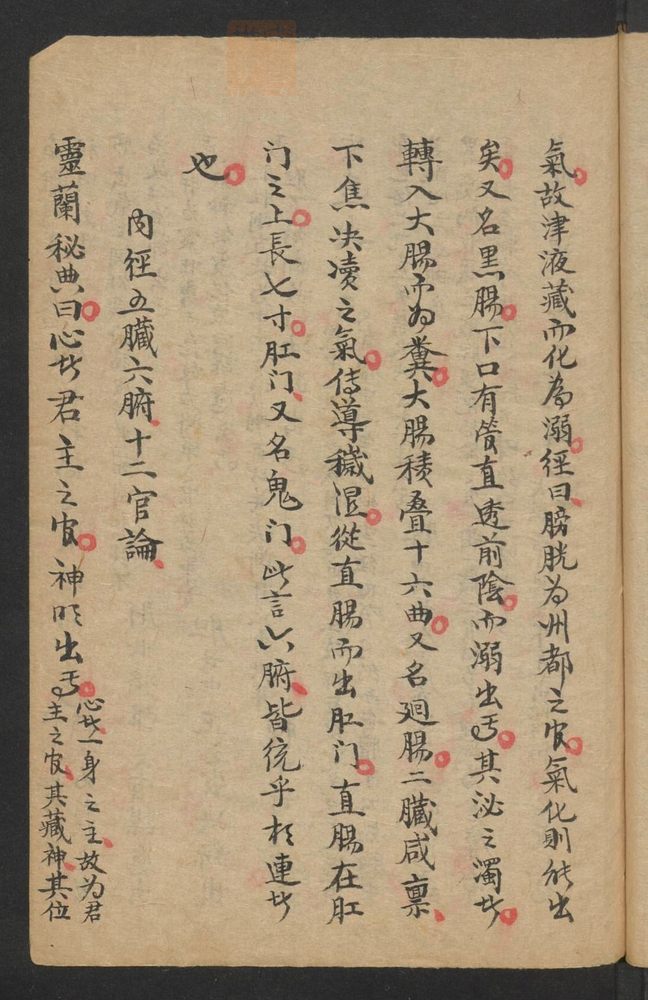 氣故津液藏而化為溺經曰膀胱为州都之官氣化則能出
矣又名黑腸下口有管直透前陰而溺出焉其泌之濁者
轉入大腸而为糞大腸積叠十六曲又名廻腸二臟咸禀
下焦决凟之氣傳導穢濕從直腸而出肛门直腸在肛
门之上長七寸肛门又名鬼门此言六腑皆统乎相連者
也
内經五臟六腑十二官論
靈蘭秘典曰心者君主之官神明出焉
心者一身之主故为君
主之官其藏神其位